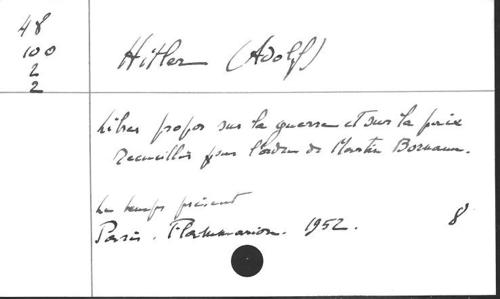 48
100
2
2
Hitler (Adolf)
Libres propos sur la guerre et sur la paix
recueillis sur l'ordre de Martin Bormann.
Le temps présent
Paris. Flammarion. 1952. 8